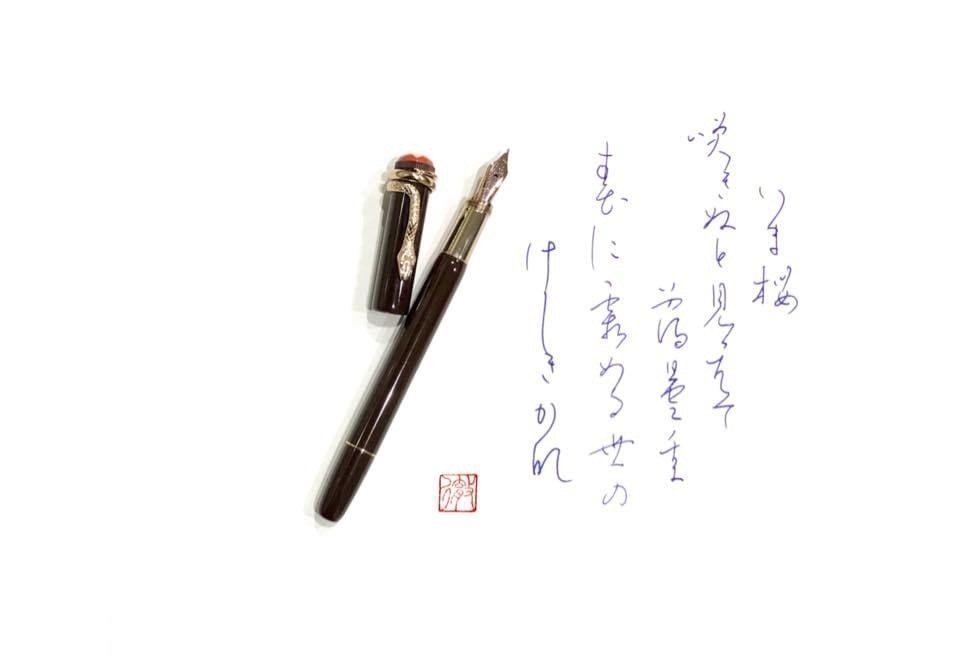 いま桜
咲きぬと見えて
薄曇里
春に霞める世の
けしきか那